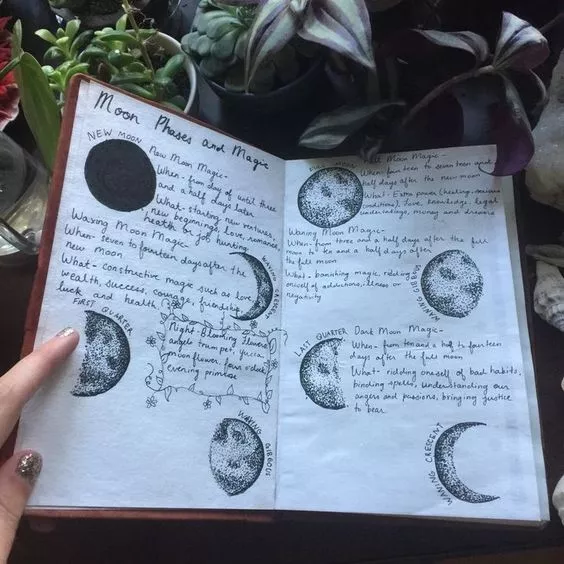 Moon Phases and Magic
NEW MOON
New Moon Magic-
When- from day of until three
and a half days later
What- starting new ventures,
new beginnings, love, romance,
health or job hunting
Waxing Moon Magic
When- seven to fourteen days after the
new moon
What- constructive magic such as love,
wealth, success, courage, friendship
luck and health
WAXING CRESCENT
FIRST QUARTER
Night-Blooming flowers
angels trumpet, yucca
moon flower, four o'clock
evening primrose
WAXING GIBBOUS
FULL MOON
Full Moon Magic-
When- from fourteen to seventeen and
half days after the new moon
What- Extra power (healing, serious
conditions), love, knowledge, legal
undertakings, money and dreams
Waning Moon Magic-
When- from three and a half days after the full
moon to ten and a half days after
the full moon
What- banishing magic, ridding
oneself of addictions, illness or
negativity
WANING GIBBOUS
LAST QUARTER
Dark Moon Magic-
When- from ten and a half to fourteen
days after the full moon
What- ridding oneself of bad habits,
binding spells, understanding our
angers and passions, bringing justice
to bear.
WANING CRESCENT